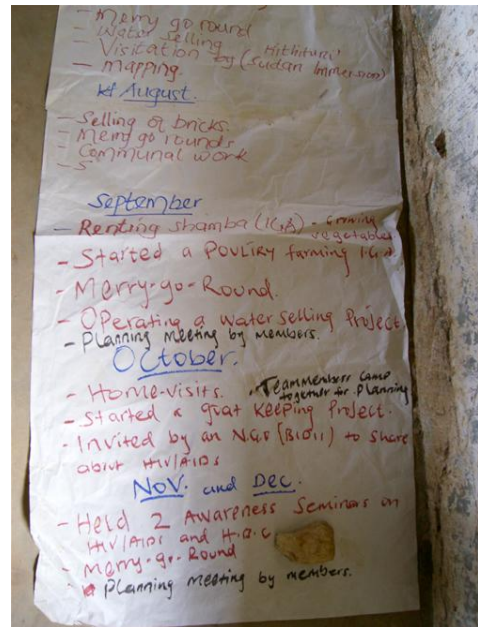 - Merry go round
- Water selling
- Visitation by (Sudan Immersion)
- mapping.
August.
- Selling of bricks.
- Merry go rounds
- Communal work
- S
September
- Renting shamba (IGA) - Growing
vegetables
- Started a POULTRY farming IGA
- Merry-go-Round.
- Operating a water selling Project
- Planning meeting by members.
October.
- Home-visits. - Team members came
together for planning
- Started a goat keeping Project.
- Invited by an N.G.O (BIDII) to share
about HIV/AIDs
Nov. and Dec.
- Held 2 Awareness Seminars on
HIV/AIDs and H.B.C
- Merry-go-Round
- Planning meeting by members.